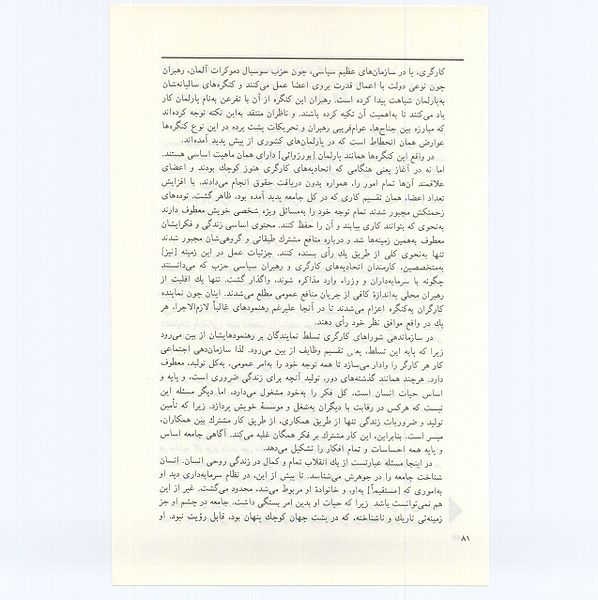 کارگری، یا در سازمان‌های عظیم سیاسی، چون حزب سوسیال دموکرات آلمان، رهبران
چون نوعی دولت با اعمال قدرت بروی اعضا عمل می‌کنند و کنگره‌های سالیانه‌شان
به‌پارلمان شباهت پیدا کرده است. رهبران این کنگره از آن با تفرعن به‌نام پارلمان کار
یاد می‌کنند تا به‌اهمیت آن تکیه کرده باشند. و ناظران منتقد به‌این نکته توجه کرده‌اند
که مبارزه بین جناح‌ها، عوام‌فریبی رهبران و تحریکات پشت پرده در این نوع کنگره‌ها
عوارض همان انحطاط است که در پارلمان‌های کشوری از پیش پدید آمده‌اند.
در واقع این کنگره‌ها همانند پارلمان [بورژوائی] دارای همان ماهیت اساسی هستند.
اما نه در آغاز یعنی هنگامی که اتحادیه‌های کارگری هنوز کوچك بودند و اعضای
علاقمند آن‌ها تمام امور را، همواره بدون دریافت حقوق انجام می‌دادند. با افزایش
تعداد اعضاء، همان تقسیم کاری که در کل جامعه پدید آمده بود، ظاهر گشت. توده‌های
زحمتکش مجبور شدند تمام توجه خود را به‌مسائل ویژه شخصی خویش معطوف دارند
به‌نحوی که بتوانند کاری بیابند و آن را حفظ کنند. محتوی اساسی زندگی و فکرایشان
معطوف به‌همین زمینه‌ها شد و درباره منافع مشترك طبقاتی و گروهی‌شان مجبور شدند
تنها به‌نحوی کلی از طریق یك رأی بسنده کنند. جزئیات عمل در این زمینه [نیز]
به‌متخصصین، کارمندان اتحادیه‌های کارگری و رهبران سیاسی حزب که می‌دانستند
چگونه با سرمایه‌داران و وزراء وارد مذاکره شوند، واگذار گشت. تنها یك اقلیت از
رهبران محلی به‌اندازهٔ کافی از جریان منافع عمومی مطلع می‌شدند. اینان چون نماینده
کارگران به‌کنگره اعزام می‌شدند تا در آنجا علیرغم رهنمودهای غالباً لازم‌الاجرا، هر
یك در واقع موافق نظر خود رأی دهند.
در سازماندهی شوراهای کارگری تسلط نمایندگان بر رهنمودهایشان از بین می‌رود
زیرا که پایه این تسلط، یعنی تقسیم وظایف از بین می‌رود. لذا سازمان‌دهی اجتماعی
کار هر کارگر را وادار می‌سازد تا همه توجه خود را به‌امر عمومی، به‌کل تولید، معطوف
دارد. هرچند همانند گذشته‌های دور، تولید آنچه برای زندگی ضروری است، و پایه و
اساس حیات انسان است، کل فکر را به‌خود مشغول می‌دارد، اما دیگر مسئله این
نیست که هرکس در رقابت با دیگران به‌شغل و موسسهٔ خویش پردازد. زیرا که تأمین
تولید و ضروریات زندگی تنها از طریق همکاری، از طریق کار مشترك بین همکاران،
میسر است. بنابراین، این کار مشترك بر فکر همگان غلبه می‌کند. آگاهی جامعه اساس
و پایه همه احساسات و تمام افکار را تشکیل می‌دهد.
در اینجا مسئله عبارتست از یك انقلاب تمام و کمال در زندگی روحی انسان. انسان
شناخت جامعه را در جوهرش می‌شناسد. تا پیش از این، در نظام سرمایه‌داری دید او
به‌اموری که [مستقیماً] به‌او، و خانوادهٔ او مربوط می‌شد، محدود می‌گشت. غیر از این
هم نمی‌توانست باشد زیرا که حیات او بدین امر بستگی داشت. جامعه در چشم او جز
زمینه‌ئی تاریك و ناشناخته، که در پشت جهان کوچك پنهان بود، قابل رؤیت نبود. او
۸۱